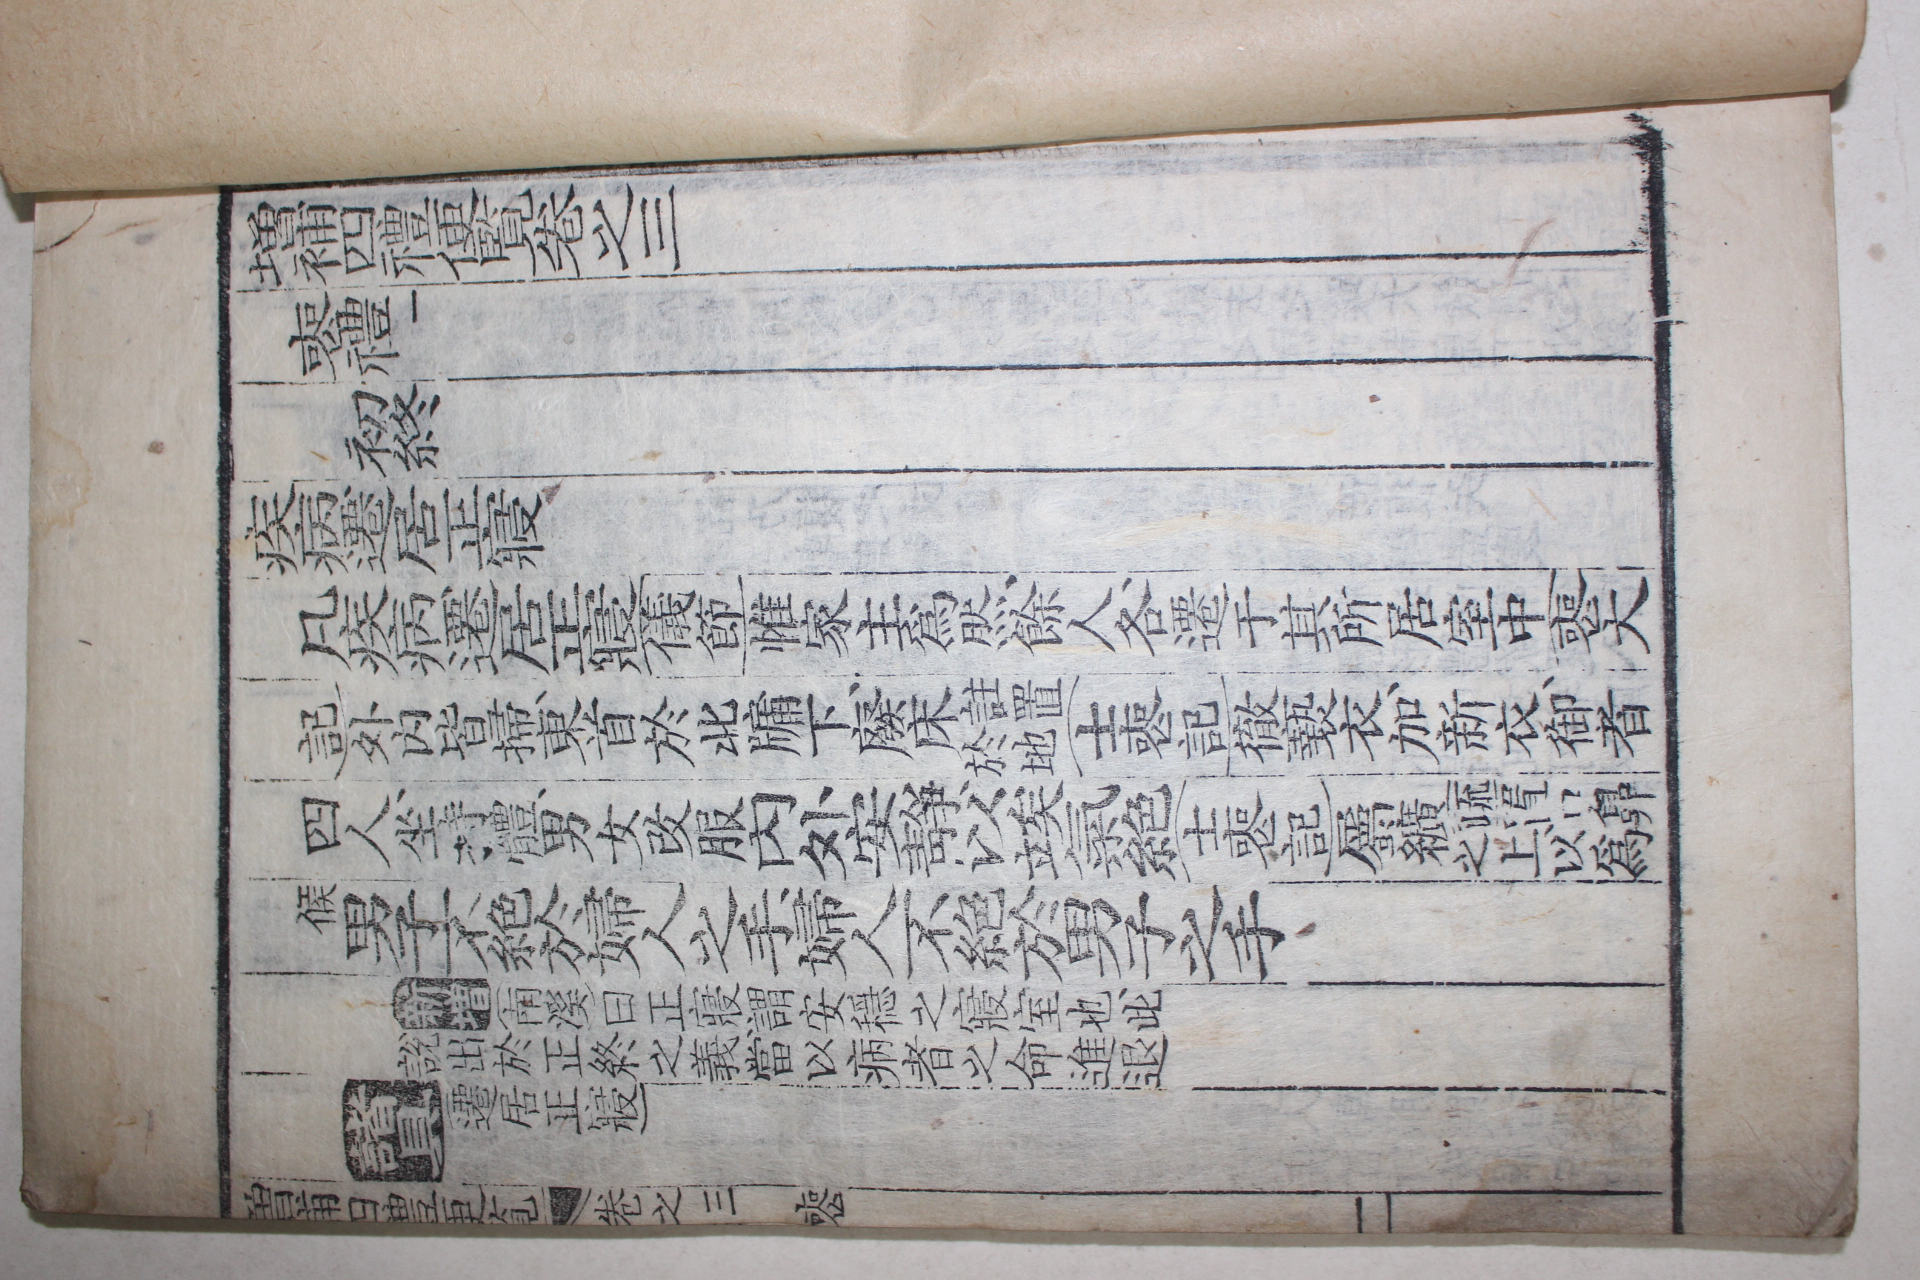 增補四禮便覽卷之三
喪禮一
初終
疾病遷居正寢
凡疾病遷居正寢(儀節)惟家主爲然餘人各遷于其所居室中(喪大
記)外內皆掃東首於北牖下廢床註置於地(士喪記)徹褻衣加新衣御者
四人坐持體男女改服內外安靜以竢氣絶(士喪記)屬纊疏置口鼻之上以爲
候男子不絶於婦人之手婦人不絶於男子之手
新增(南溪)曰正寢謂安穩之寢室也此
說出於正終之義當以病者之命進退
諸具(遷居正寢)
增補四禮便覽 卷之三 喪 一